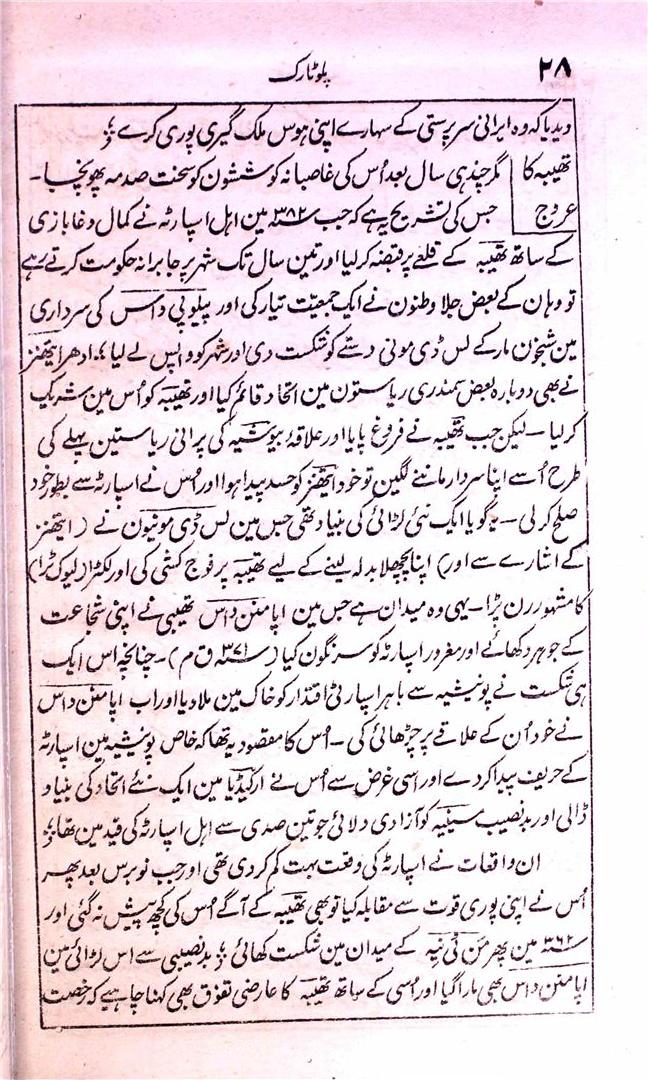 ۲۸
پلوٹارک
دیدیا کہ وہ ایرانی سرپرستی کے سہارے اپنی ہوس ملک گیری پوری کرے ؛
تھیبہ کا
عروج
مگر چند ہی سال بعد اُس کی غاصبانہ کوششون کو سخت صدمہ پھونچا۔
جس کی تشریح یہ ہے کہ جب ۳۸۲ء مین اہل اسپارٹہ نے کمال دغا بازی
کے ساتھ تھیبہ کے قلعے پر قبضہ کر لیا اور تین سال تک شہر پر جابرانہ حکومت کرتے رہے
تو وہان کے بعض جلا وطنون نے ایک جمعیت تیار کی اور پیلوپی داس کی سرداری
مین شبخون مار کے لس ڈی مونی دستے کو شکست دی اور شہر کو واپس لے لیا ؛ ادھر ایتھنز
نے بھی دوبارہ بعض سمندری ریاستون مین اتحاد قائم کیا اور تھیبہ کو اُس مین شریک
کر لیا ۔ لیکن جب تھیبہ نے فروغ پایا اور علاقۂ بیوشیہ کی پرانی ریاستین پہلے کی
طرح اُسے اپنا سردار ماننے لگین تو خود ایتھنز کو حسد پیدا ہوا اور اُس نے اسپارٹہ سے بطور خود
صلح کر لی ۔ یہ گویا ایک نئی لڑائی کی بنیاد تھی جس مین لس ڈی مونیون نے (ایتھنز
کے اشارے سے اور) اپنا پچھلا بدلہ لینے کے لیے تھیبہ پر فوج کشی کی اور لکٹرا (لیوک ٹرا)
کا مشہور رن پڑا۔ یہی وہ میدان ہے جس مین اپا منن داس تھیبی نے اپنی شجاعت
کے جوہر دکھائے اور مغرور اسپارٹہ کو سرنگون کیا (۳۷۱ء ق م)۔ چنانچہ اس ایک
ہی شکست نے پونیشیہ سے باہر اسپارٹی اقتدار کو خاک مین ملا دیا اور اب اپا منن داس
نے خود اُن کے علاقے پر چڑھائی کی ۔ اُس کا مقصود یہ تھا کہ خاص پونیشیہ مین اسپارٹہ
کے حریف پیدا کر دے اور اسی غرض سے اُس نے ارکیڈیا مین ایک نئے اتحاد کی بنیاد
ڈالی اور بدنصیب مسینیہ کو آزادی دلائی جو تین صدی سے اہل اسپارٹہ کی قید مین تھا ؛
ان واقعات نے اسپارٹہ کی وقعت بہت کم کر دی تھی اور جب نو برس بعد پھر
اُس نے اپنی پوری قوت سے مقابلہ کیا تو بھی تھیبہ کے آگے اُس کی کچھ پیش نہ گئی اور
۳۶۲ء مین پھر من ٹی نیہ کے میدان مین شکست کھائی ؛ بدنصیبی سے اس لڑائی مین
اپا منن داس بھی مارا گیا اور اُسی کے ساتھ تھیبہ کا عارضی تفوق بھی کہنا چاہیے کہ رخصت